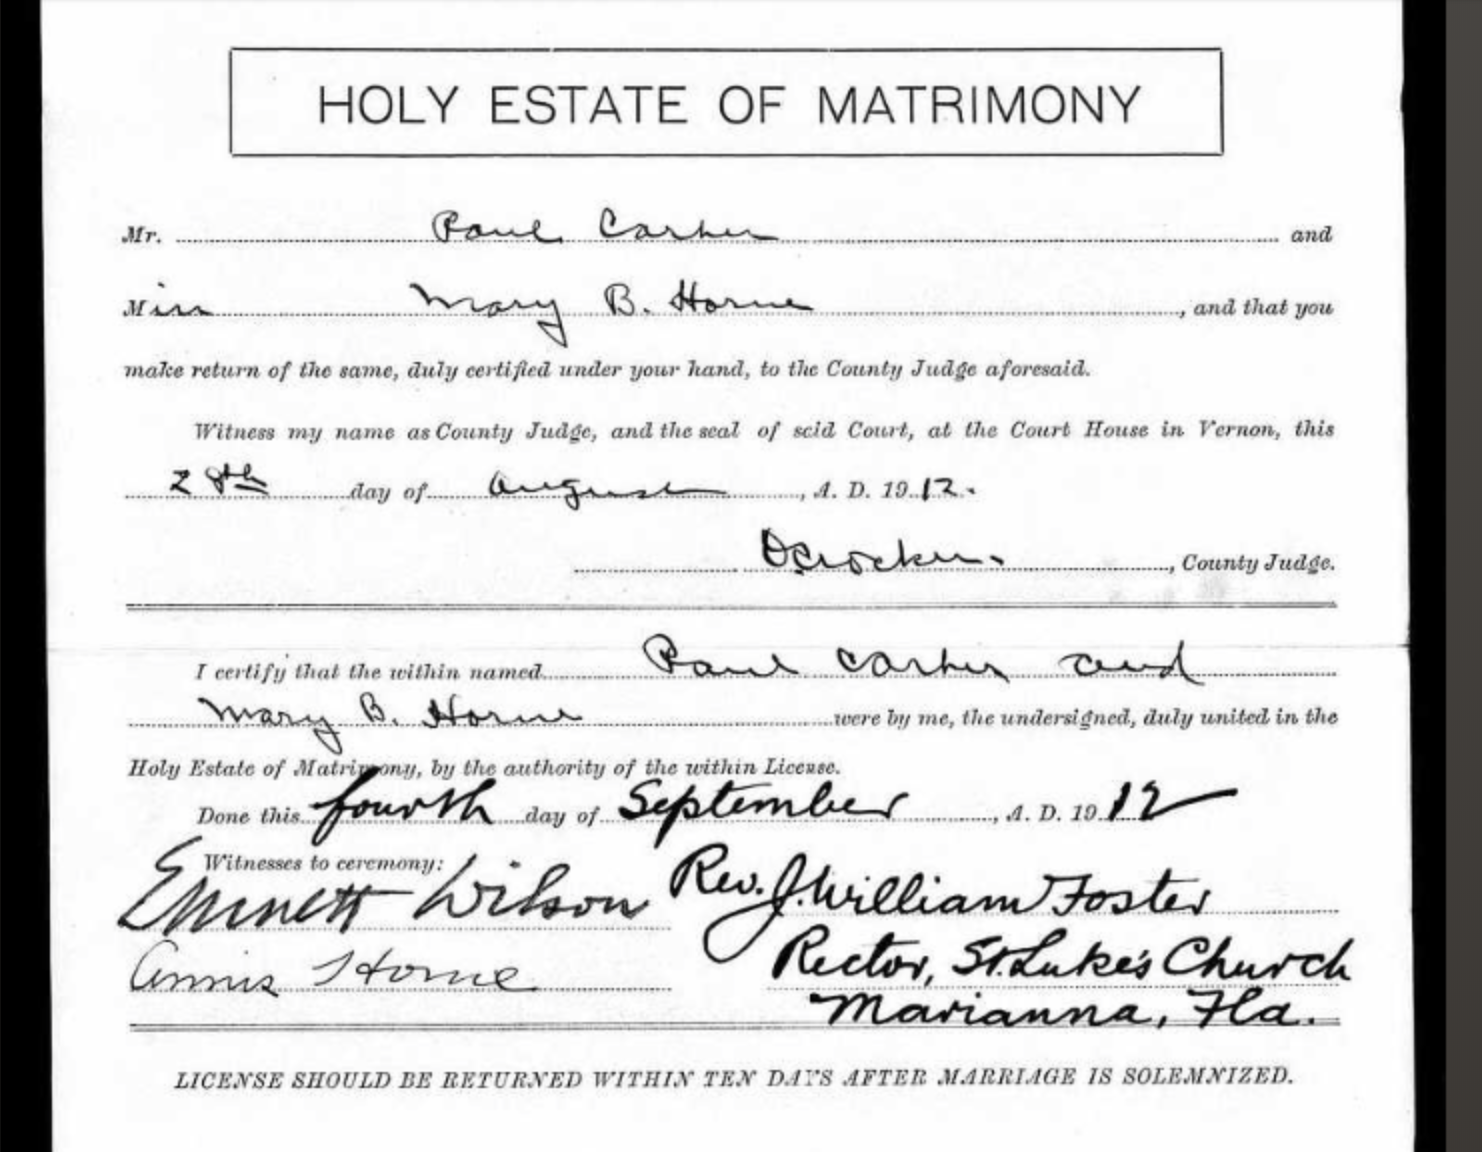 HOLY ESTATE OF MATRIMONY
Mr. Paul Carter and
Miss Mary B. Horne, and that you
make return of the same, duly certified under your hand, to the County Judge aforesaid.
Witness my name as County Judge, and the seal of said Court, at the Court House in Vernon, this
28th day of August, A. D. 1912.
County Judge.
I certify that the within named Paul Carter and
Mary B. Horne were by me, the undersigned, duly united in the
Holy Estate of Matrimony, by the authority of the within License.
Done this fourth day of September, A. D. 1912
Witnesses to ceremony:
Emmett Wilson Rev. J. William Foster
Annis Horne Rector, St. Luke's Church
Marianna, Fla.
LICENSE SHOULD BE RETURNED WITHIN TEN DAYS AFTER MARRIAGE IS SOLEMNIZED.